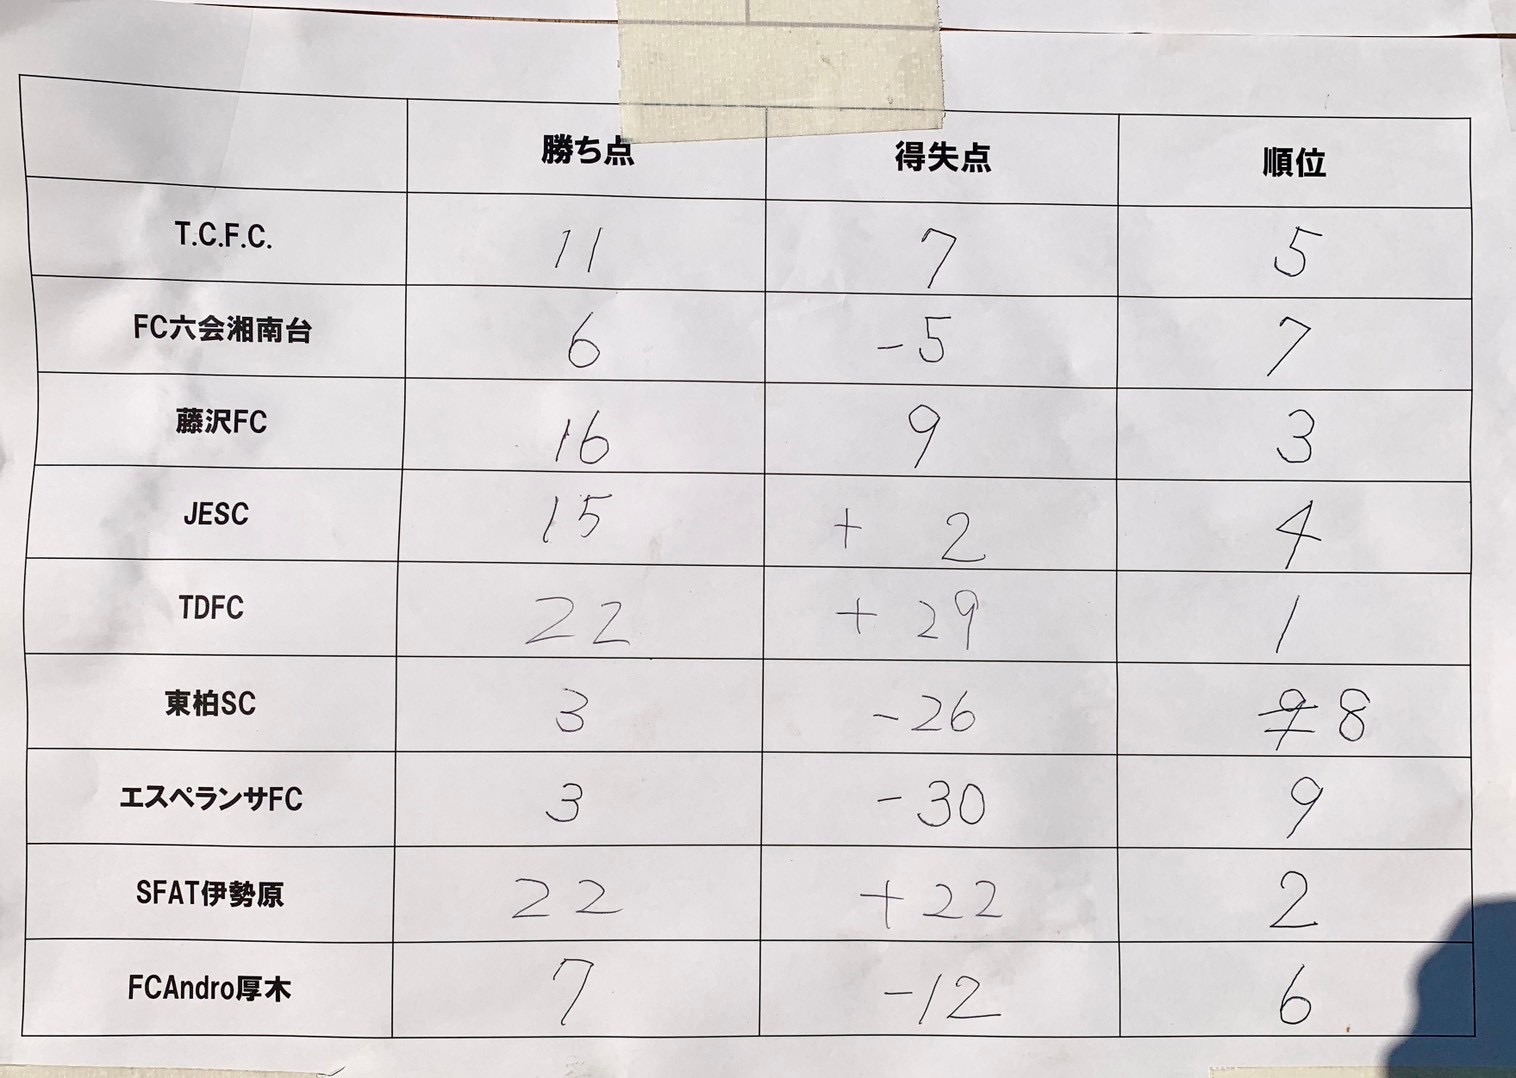 勝ち点 得失点 順位
T.C.F.C. 11 7 5
FC六会湘南台 6 -5 7
藤沢FC 16 9 3
JESC 15 + 2 4
TDFC 22 +29 1
東柏SC 3 -26 9 8
エスペランサFC 3 -30 9
SFAT伊勢原 22 +22 2
FCAndro厚木 7 -12 6